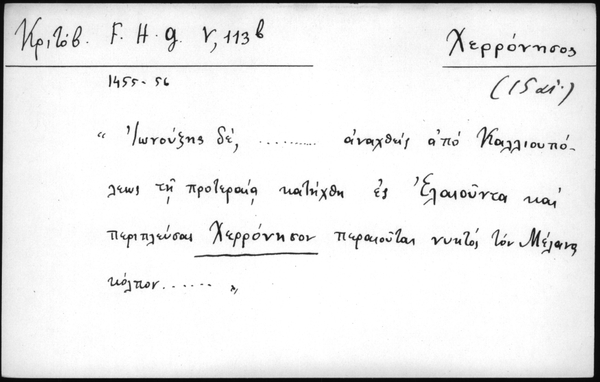 Κριτόβ. F. H. g. V, 113b
Χερρόνησος
1455-56
(15 αἰ.)
“ Ἰωνούζης δέ, ........... ἀναχθείς ἀπό Καλλιουπό-
λεως τῇ προτεραίᾳ κατήχθη ἐς Ἐλαιοῦντα καί
περιπλεύσας Χερρόνησον περαιοῦται νυκτός τόν Μέλανα
κόλπον...... ”